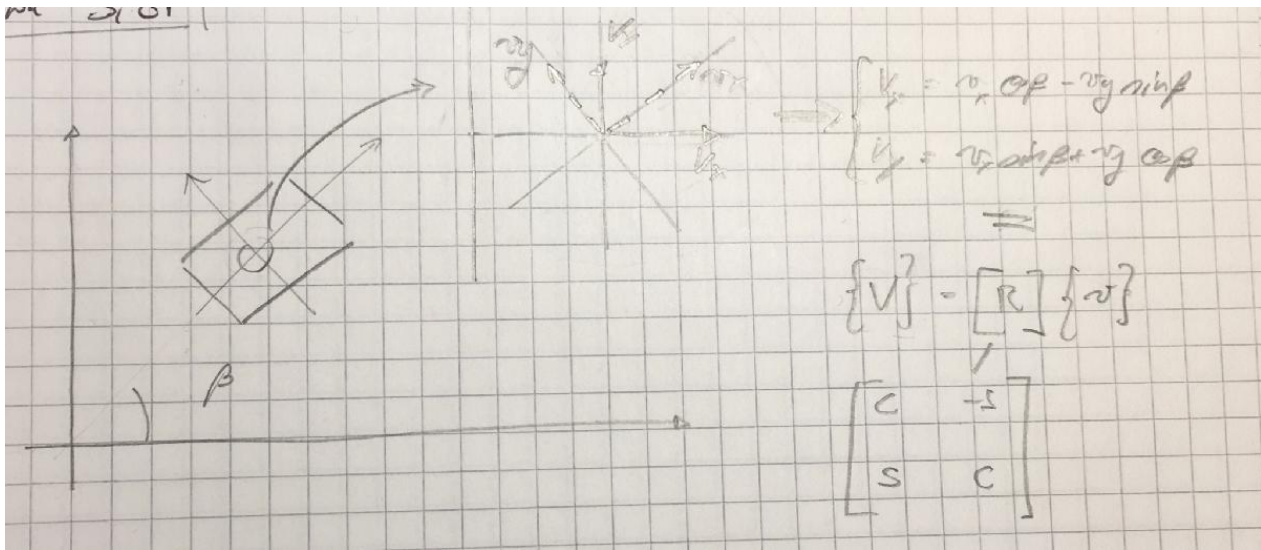 vy
Vx
β
Vx = vx cosβ - vy sinβ
Vy = vx sinβ + vy cosβ
=
{V} = [R] {v}
[ C -S
S C ]